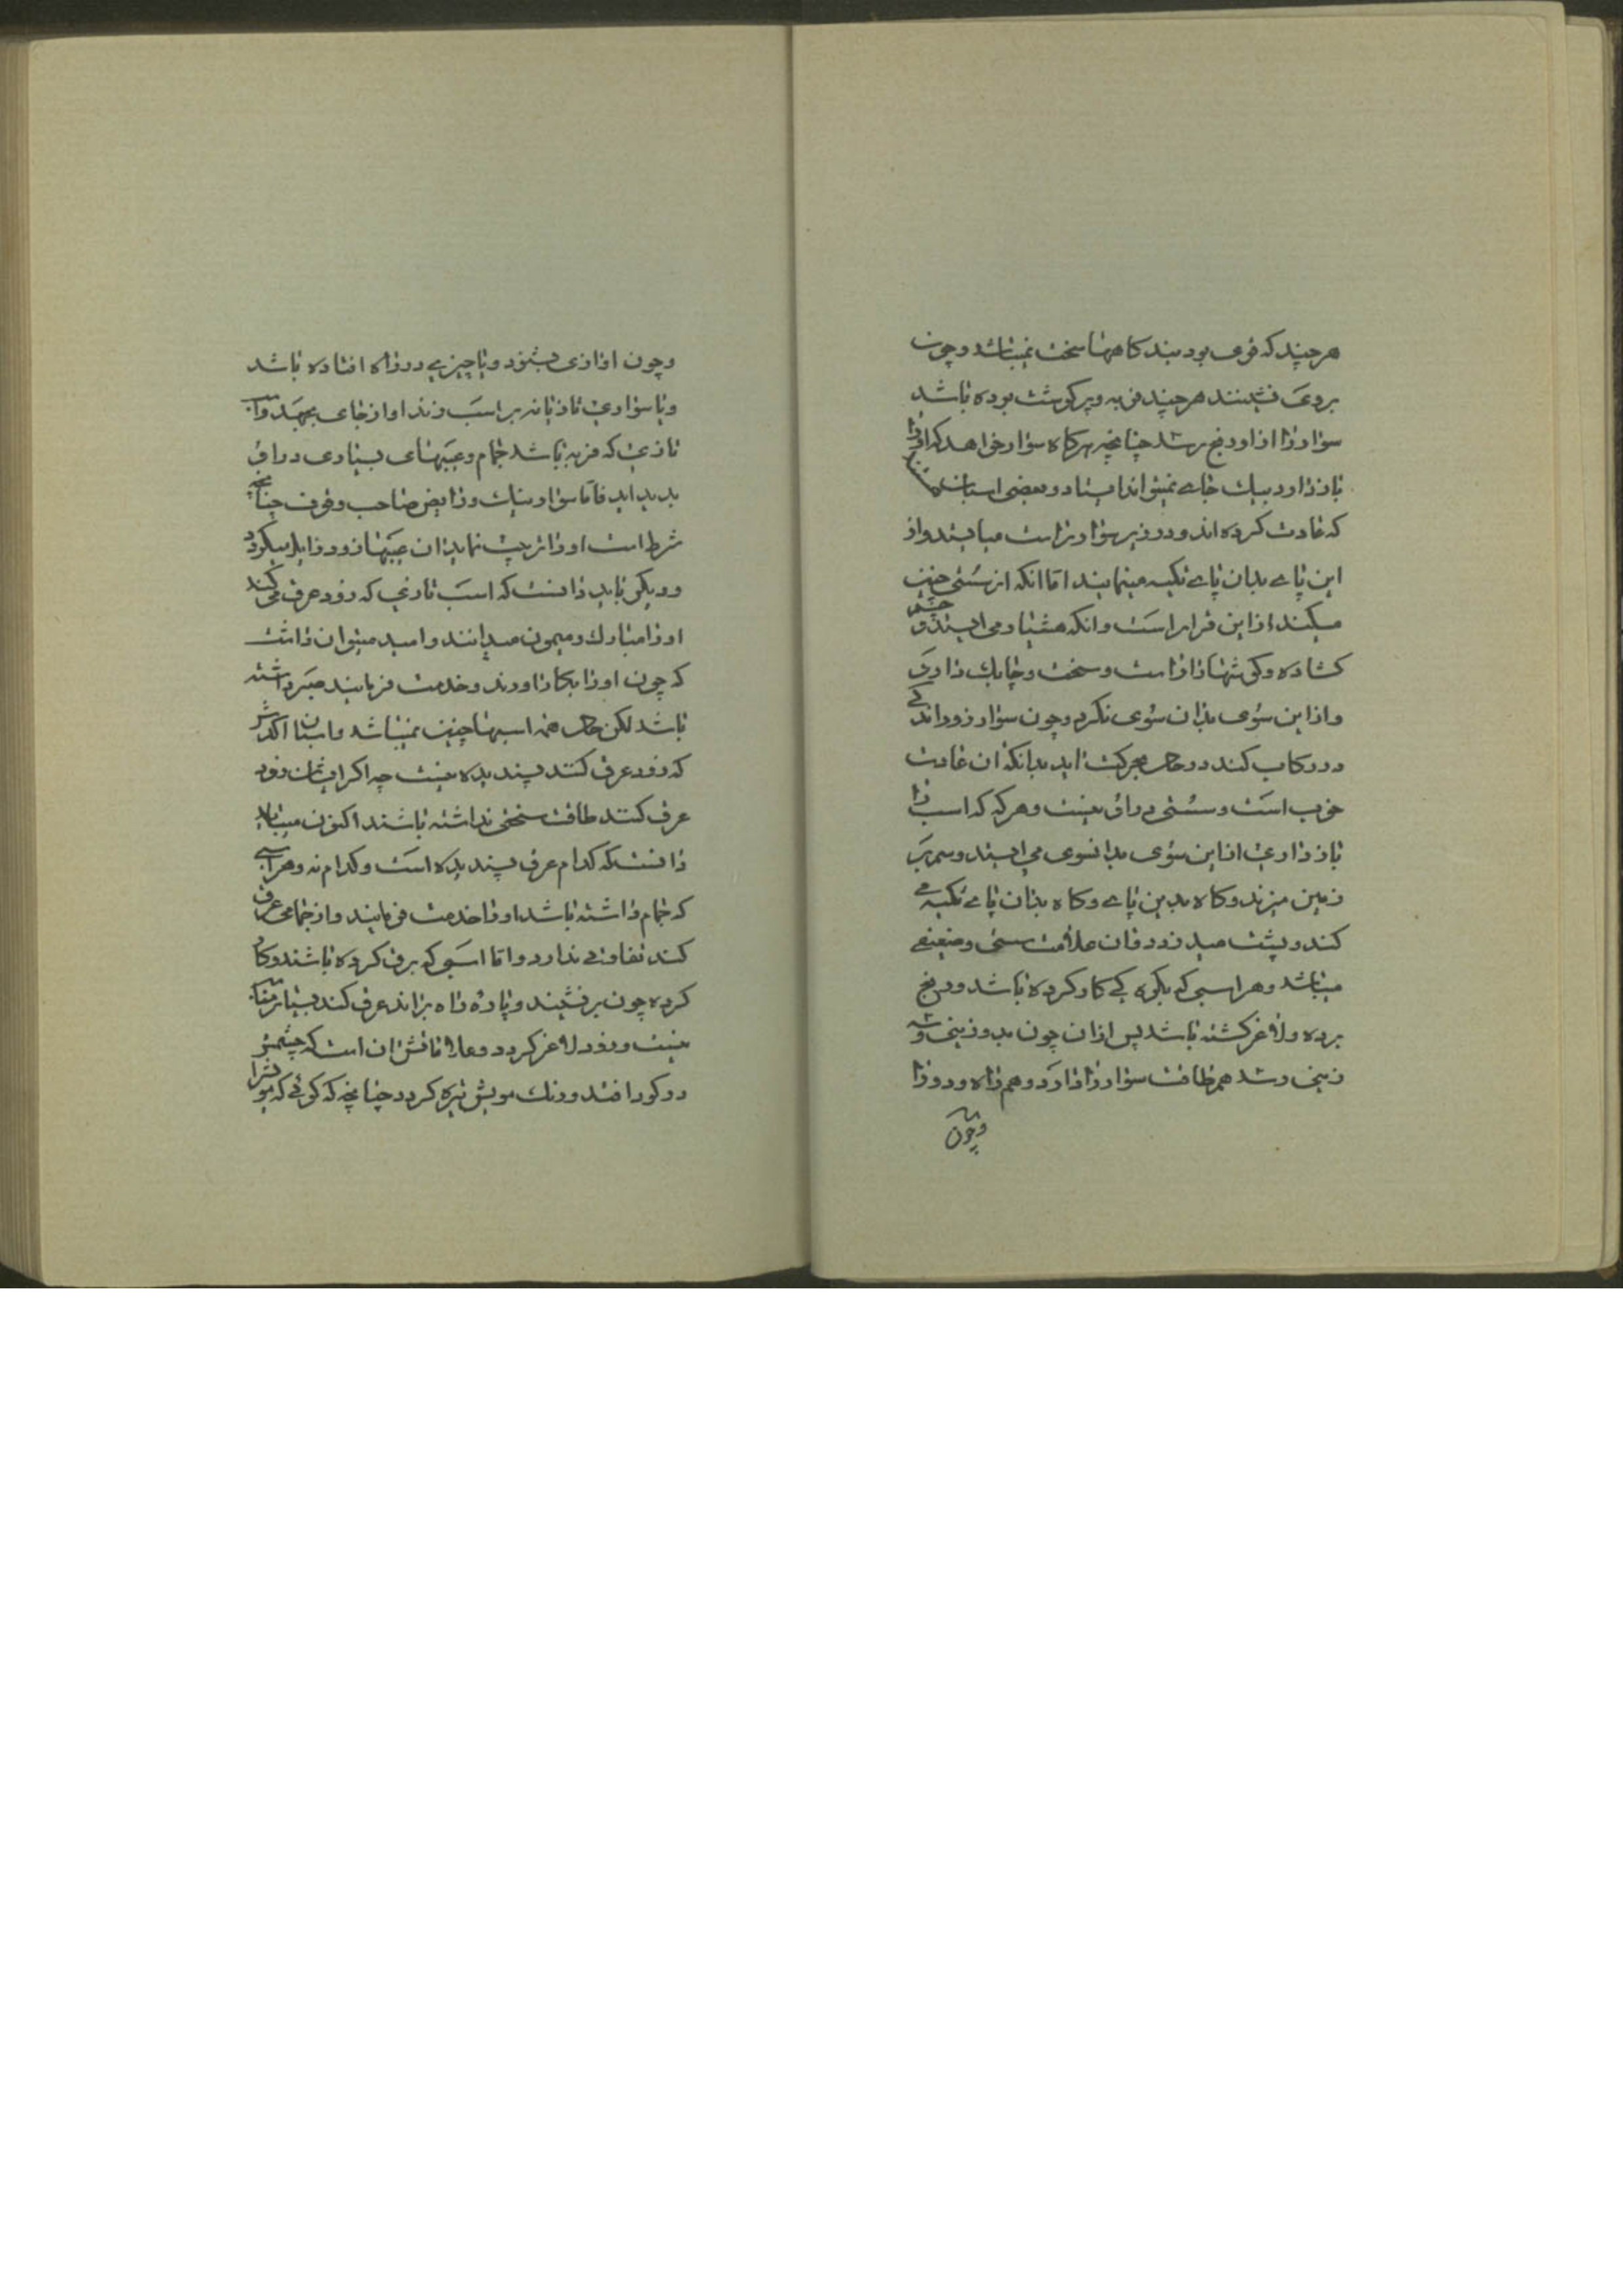 هرچند که قوی بود بند کاههٔا سخت نمیباشد و چون
بروی نشینند هرچند فربه و پر کوشت بوده باشد
سوار را ازاو رنج رسد چنانچه هرکاه سوار خواهد که اورا
باز دارد بیک جای نمیتواند ایستاد و بعضی اسبان
که عادت کرده اند و در زیر سوار راست میایستد واز
این پای بدان پای تکیه مینمایند اما انکه از سستی چنین
میکند ازاین قرار است وانکه هشیار می ایستد و چشم
کشاده وکوشها را راست و سخت و چابک دارد
وازاین سوی بدان سوی نکرد و چون سوار زود اندکی
در رکاب کند در حال بحرکت اید بدانکه ان عادت
خوب است و سستی دراو نیست و هرکه که اسب را
باز داری ازاین سوی بدانسوی می ایستد و سم بر
زمین میزند وکاه بدین پای وکاه بدان پای تکیه می
کند و پشت میدزدد فان علامت سستی و ضعیفی
میباشد و هر اسبی که بکره کی کار کرده باشد و رنج
برده و لاغر کشته باشد پس ازان چون بدو رنجی و
رنجی رسد هم طاقت سوار را دارد و هم راه رود و را
و چون
و چون اوازی بشنود ویا چیزی در راه افتاده باشد
ویا سواری تازیانه بر اسب زند او از جای بجهد واسب
تازی که فربه باشد خام وعیبهای بسیاری دراو
پدید اید فاما سوار نیک و رایض صاحب وقوف چنانچه
شرط است اورا تربیت نماید ان عیبها زود زایل میکردد
و دیکر باید دانست که اسب تازی که زود عرق می کند
اورا مبارک و میمون میدانند وامید میتوان داشت
که چون اورا بکار اورند و خدمت فرمایند صبر داشته
باشد لکن حال همه اسبها چنین نمیباشد واسبان اکدش
که زود عرق کنند پسندیده نیست چه اکر ایشان زود
عرق کنند طاقت سختی نداشته باشند اکنون میباید
دانست که کدام عرق پسندیده است وکدام نه و هر اسبی
که خام داشته باشد اورا خدمت فرمایند واز خامی عرق
کند تفاوتی ندارد واما اسبی که برق کرده باشند وکار
کرده چون بر نشیند وپاره راه براند عرق کند بسیار
نیست و زود لاغر کردد وعلاماتش ان است که چشمش
در کود افتد و رنک مویش تیره کردد چنانچه که کوئی که مویش را